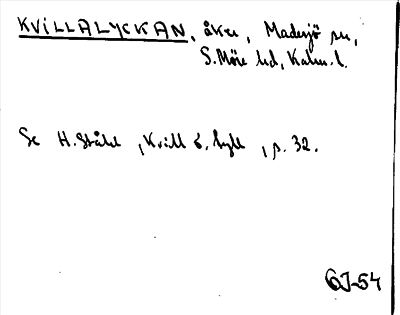 KVILLALYCKAN, åker, Madesjö sn,
S. Möre hd, Kalm. l.
Se H. Ståhl, Kvill o. tyll, s. 32.
GJ-54